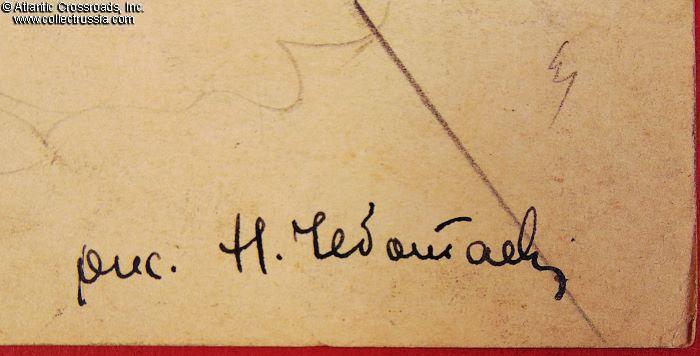 © Atlantic Crossroads, Inc.
www.collectrussia.com
рис. Н. Чеботаев